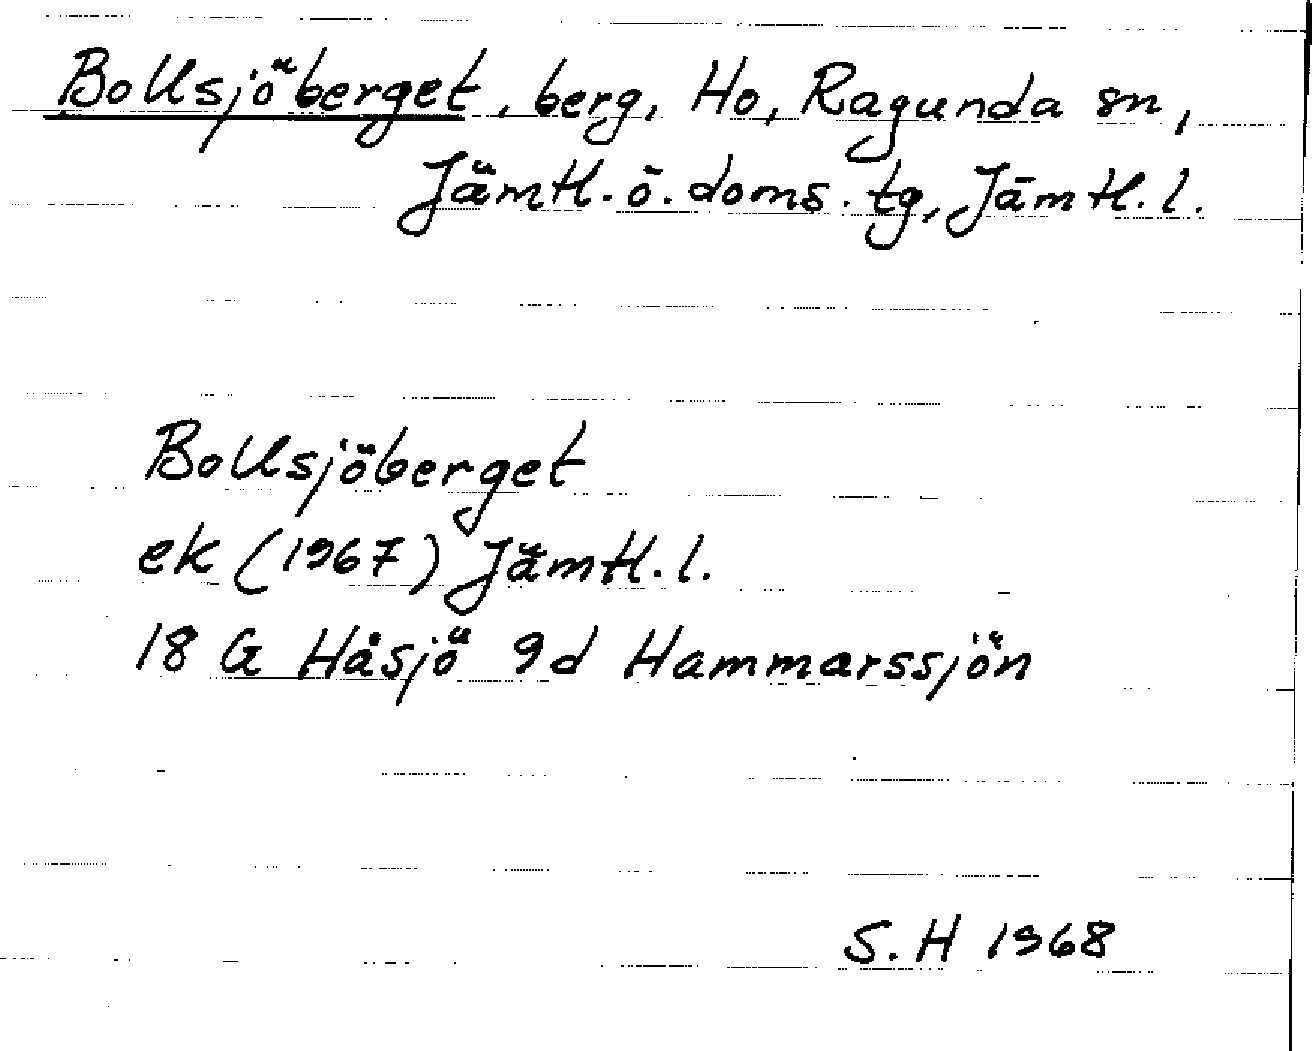 Bollsjöberget, berg, Ho, Ragunda sn,
Jämtl. ö. doms. tg, Jämtl. l.
Bollsjöberget
ek (1967) Jämtl. l.
18 G Håsjö 9d Hammarssjön
S. H 1968